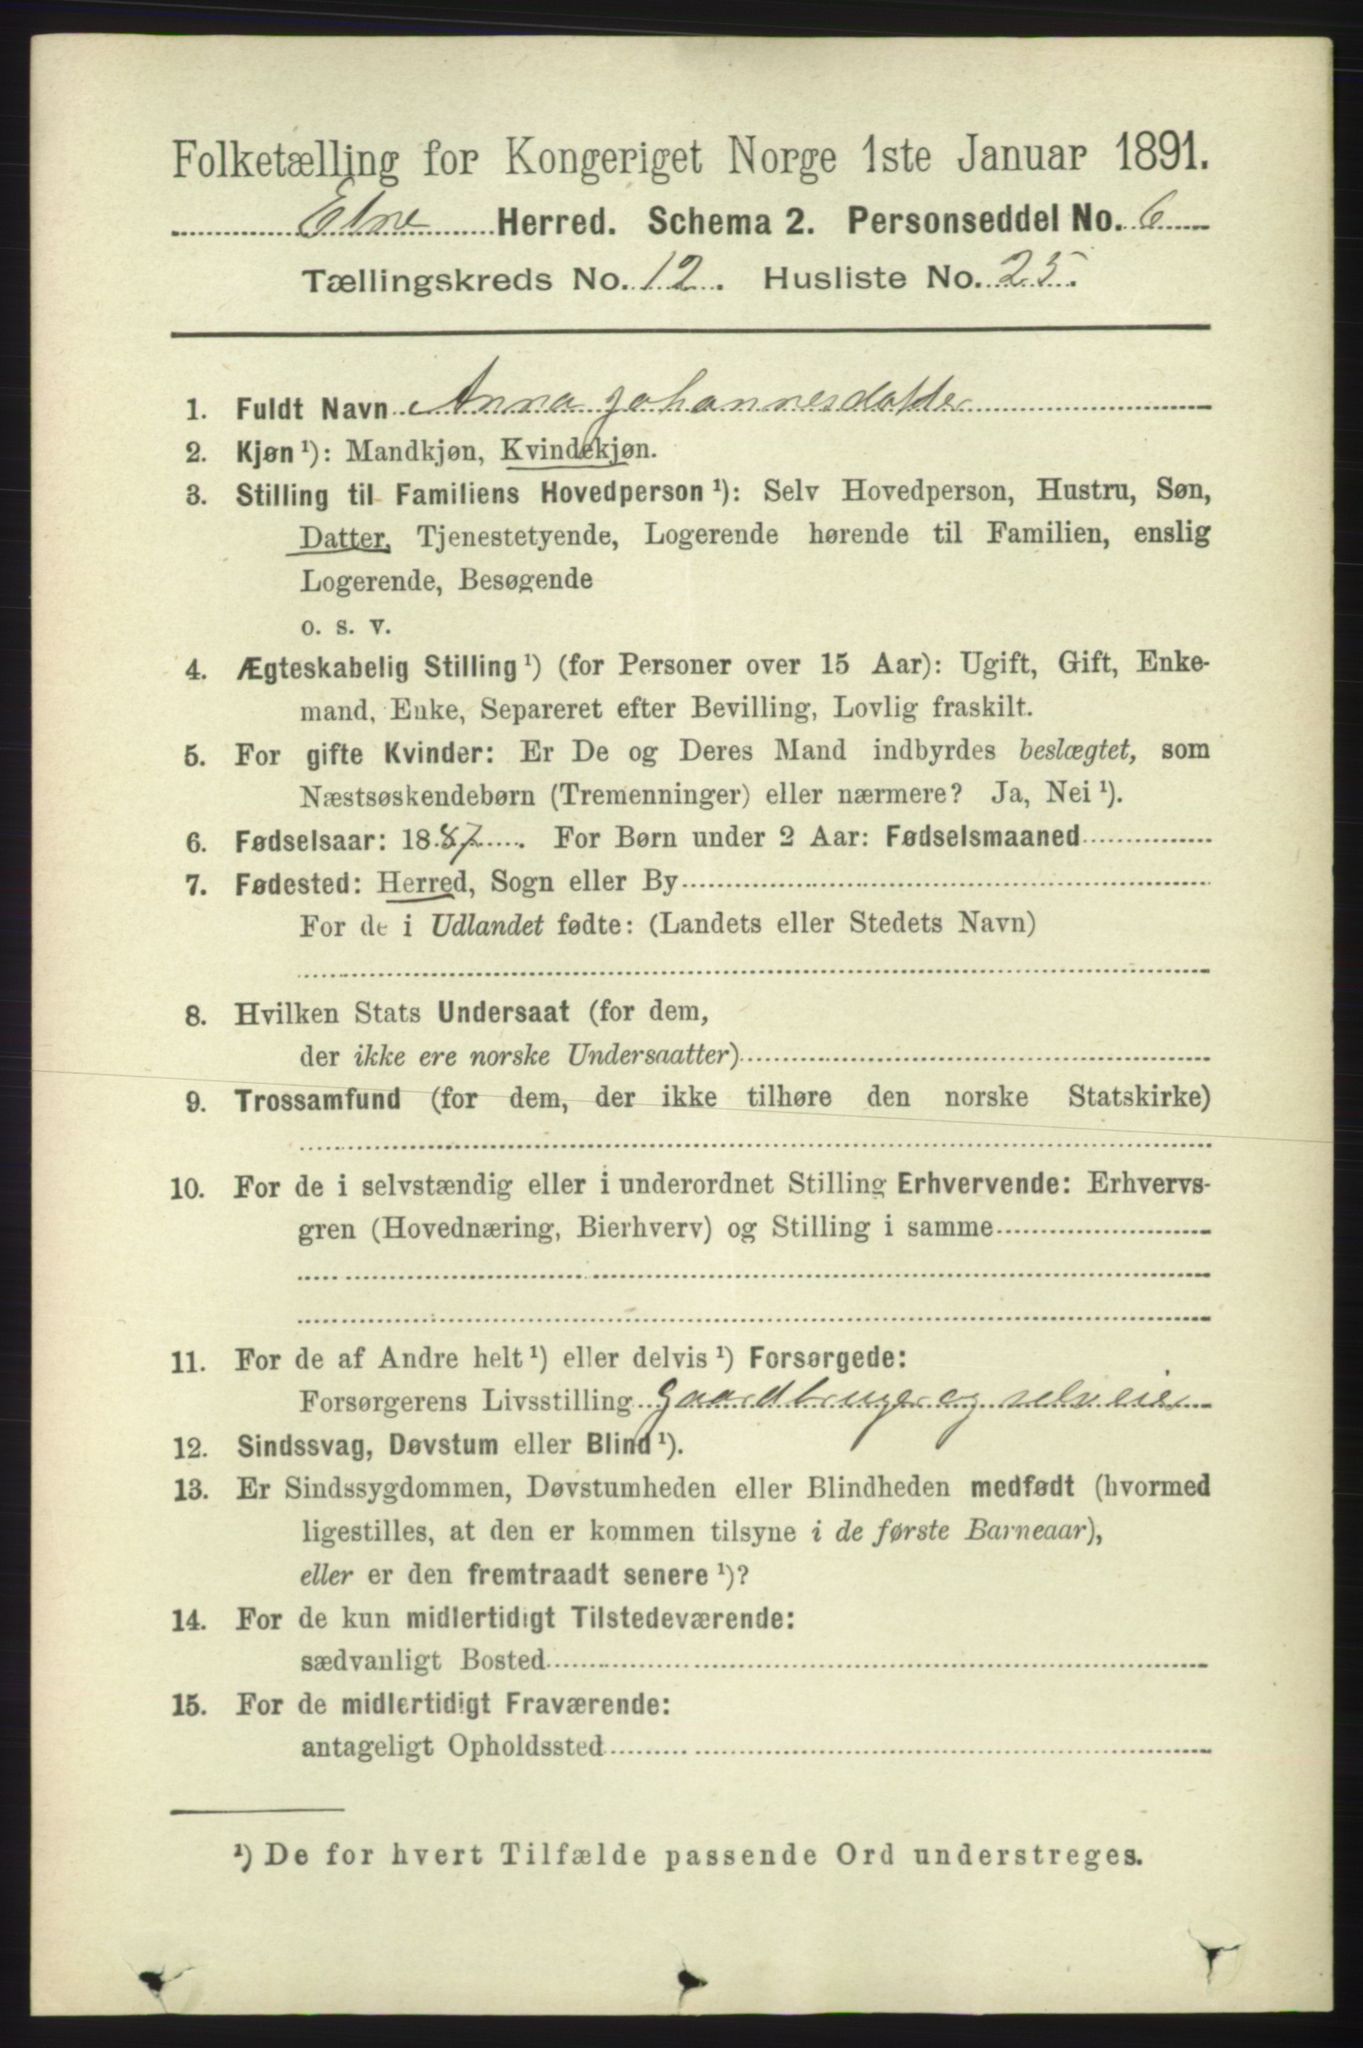 Folketælling for Kongeriget Norge 1ste Januar 1891.
Etne Herred. Schema 2. Personseddel No. 6
Tællingskreds No. 12. Husliste No. 25.
1. Fuldt Navn Anna Johannesdatter
2. Kjøn ¹): Mandkjøn, Kvindekjøn.
3. Stilling til Familiens Hovedperson ¹): Selv Hovedperson, Hustru, Søn,
Datter, Tjenestetyende, Logerende hørende til Familien, enslig
Logerende, Besøgende
o. s. v.
4. Ægteskabelig Stilling ¹) (for Personer over 15 Aar): Ugift, Gift, Enke-
mand, Enke, Separeret efter Bevilling, Lovlig fraskilt.
5. For gifte Kvinder: Er De og Deres Mand indbyrdes beslægtet, som
Næstsøskendebørn (Tremenninger) eller nærmere? Ja, Nei ¹).
6. Fødselsaar: 1887. For Børn under 2 Aar: Fødselsmaaned
7. Fødested: Herred, Sogn eller By
For de i Udlandet fødte: (Landets eller Stedets Navn)
8. Hvilken Stats Undersaat (for dem,
der ikke ere norske Undersaatter)
9. Trossamfund (for dem, der ikke tilhøre den norske Statskirke)
10. For de i selvstændig eller i underordnet Stilling Erhvervende: Erhvervs-
gren (Hovednæring, Bierhverv) og Stilling i samme
11. For de af Andre helt ¹) eller delvis ¹) Forsørgede:
Forsørgerens Livsstilling Gaardbruger og selveier
12. Sindssvag, Døvstum eller Blind ¹).
13. Er Sindssygdommen, Døvstumheden eller Blindheden medfødt (hvormed
ligestilles, at den er kommen tilsyne i de første Barneaar),
eller er den fremtraadt senere ¹)?
14. For de kun midlertidigt Tilstedeværende:
sædvanligt Bosted
15. For de midlertidigt Fraværende:
antageligt Opholdssted
¹) De for hvert Tilfælde passende Ord understreges.